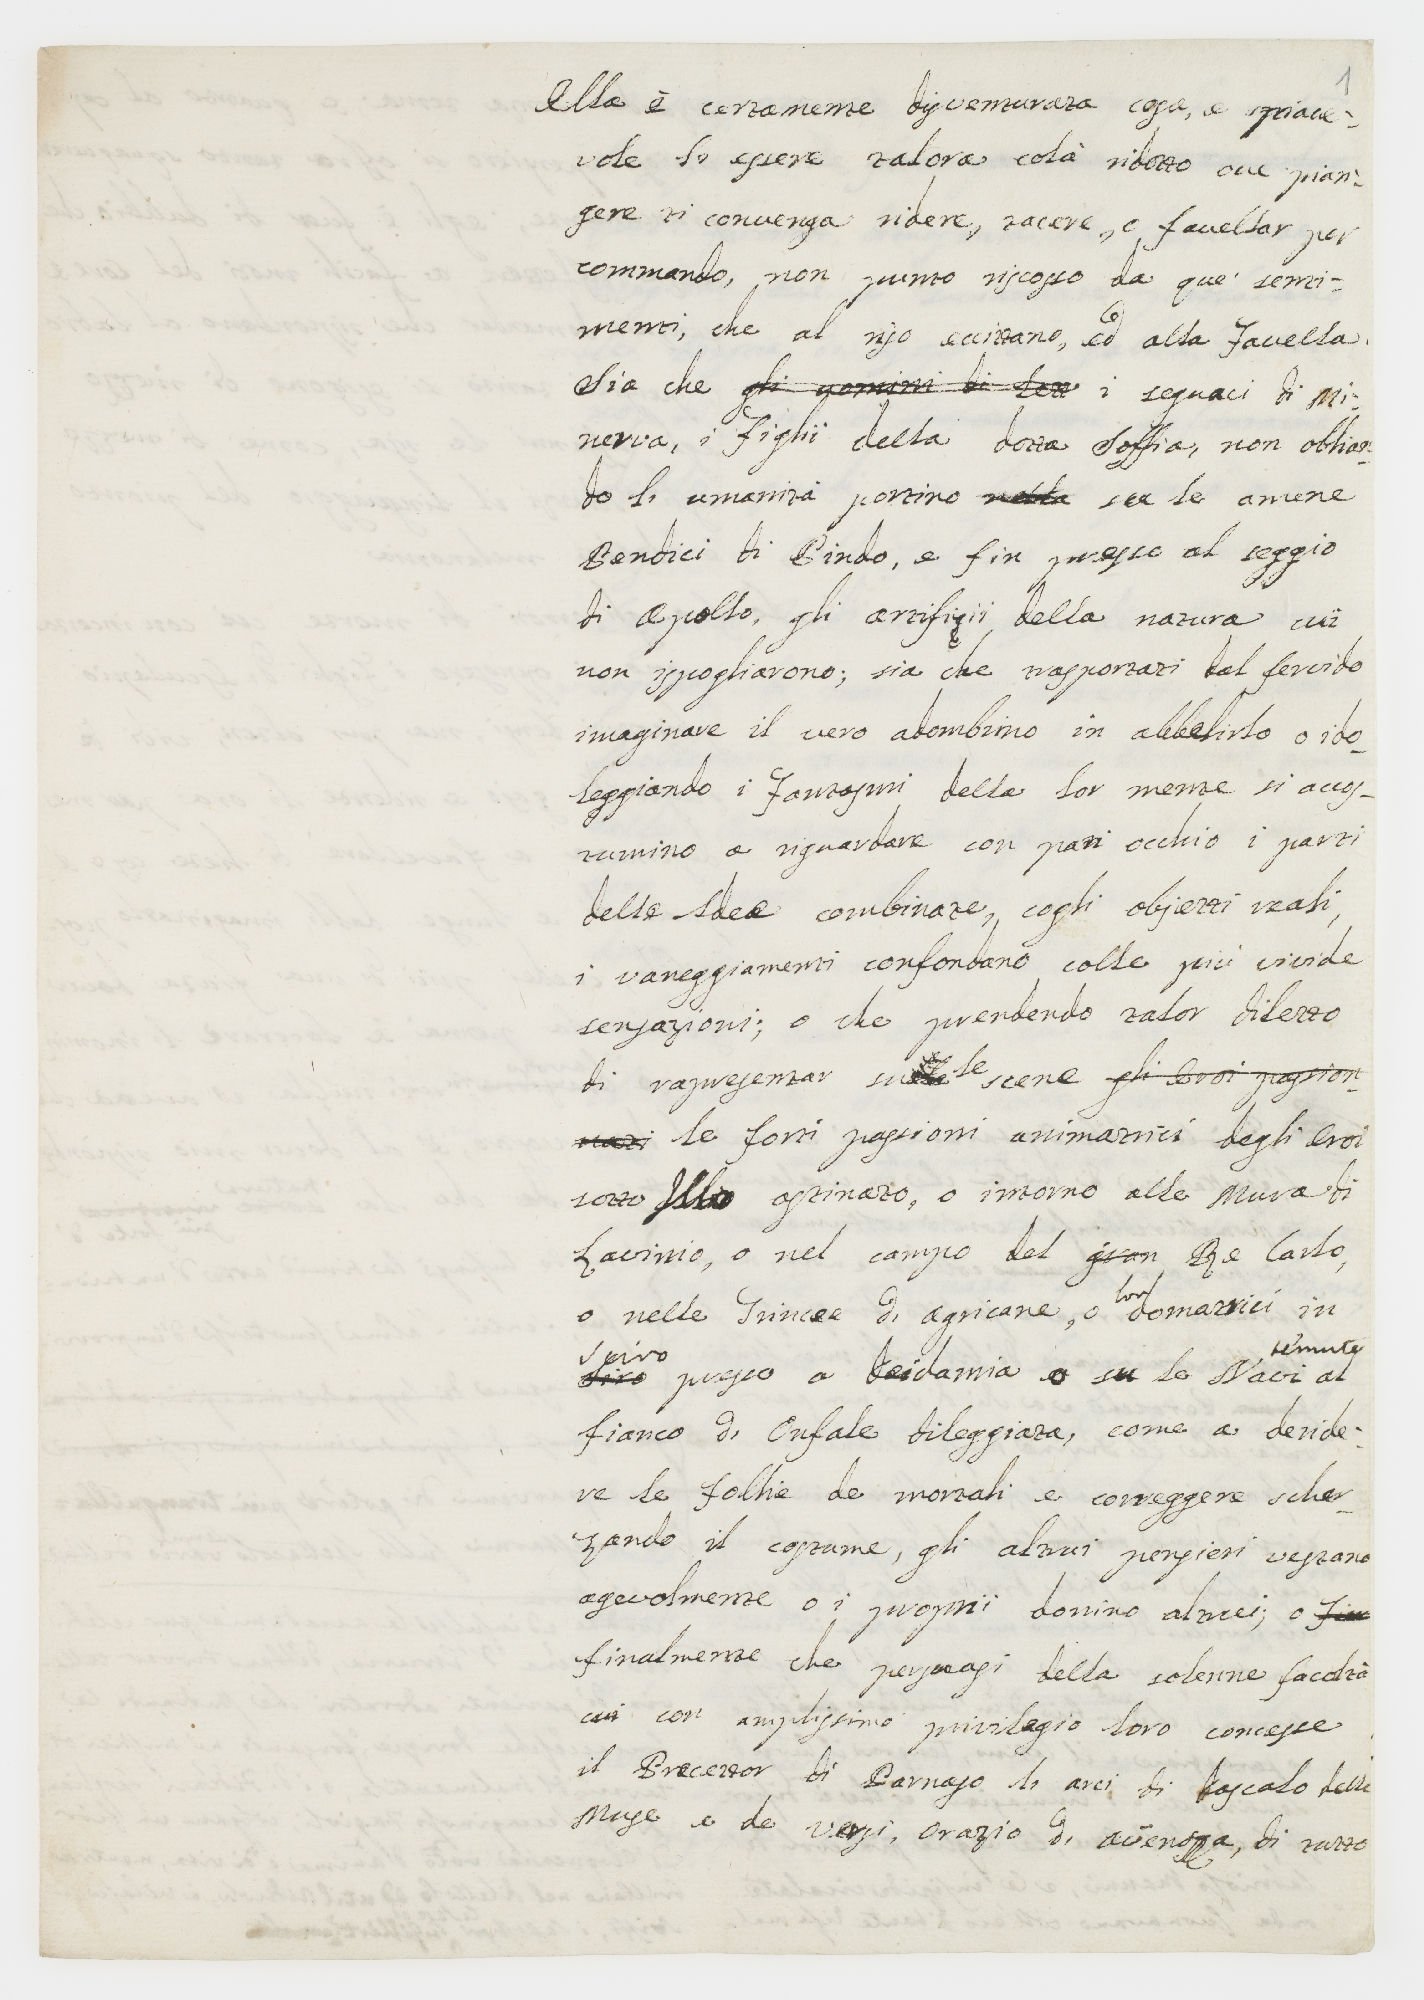 1
Ella è certamente disventurata cosa, e spiace-
vole l'essere talora colà ridotto ove pian-
gere ti convenga ridere, tacere, o favellar per
commando, non punto riscosso da que' senti-
menti, che al riso eccitano, ed alla favella.
Sia che gli uomini di lett i seguaci di Mi-
nerva, i figlii della dotta Soffia, non oblian-
do l'umanità portino nella su le amene
Pendici di Pindo, e fin presso al seggio
di Apollo, gli artifizii della natura cui
non ispogliarono; sia che trasportati dal fervido
imaginare il vero adombrino in abbelirlo o ido-
leggiando i fantasmi della lor mente si accos-
tumino a riguardare con pari occhio i parti
delle Idee combinate, cogli objetti reali,
i vaneggiamenti confondano colle più vivide
sensazioni; o che prendendo talor diletto
di rapresentar su le scene gli Eroi passion-
nati le forti passioni animatrici degli Eroi
sotto Ilio ostinato, o intorno alle Mura di
Lavinio, o nel campo del gran Re Carlo,
o nelle Trincee di Agricane, o lor domatrici in
Sciro presso a Deidamia o su le Navi temute al
fianco di Onfale dileggiata, come a deride-
re le follie de mortali e correggere scher-
zando il costume, gli altrui pensieri vestano
agevolmente o i proprii donino altrui; o fin
finalmente che persuasi della solenne facoltà
cui con amplissimo privilegio loro concesse
il Precettor di Parnaso l'arci di dascalo delle
Muse e de versi, Orazio di Venosa, di tutto